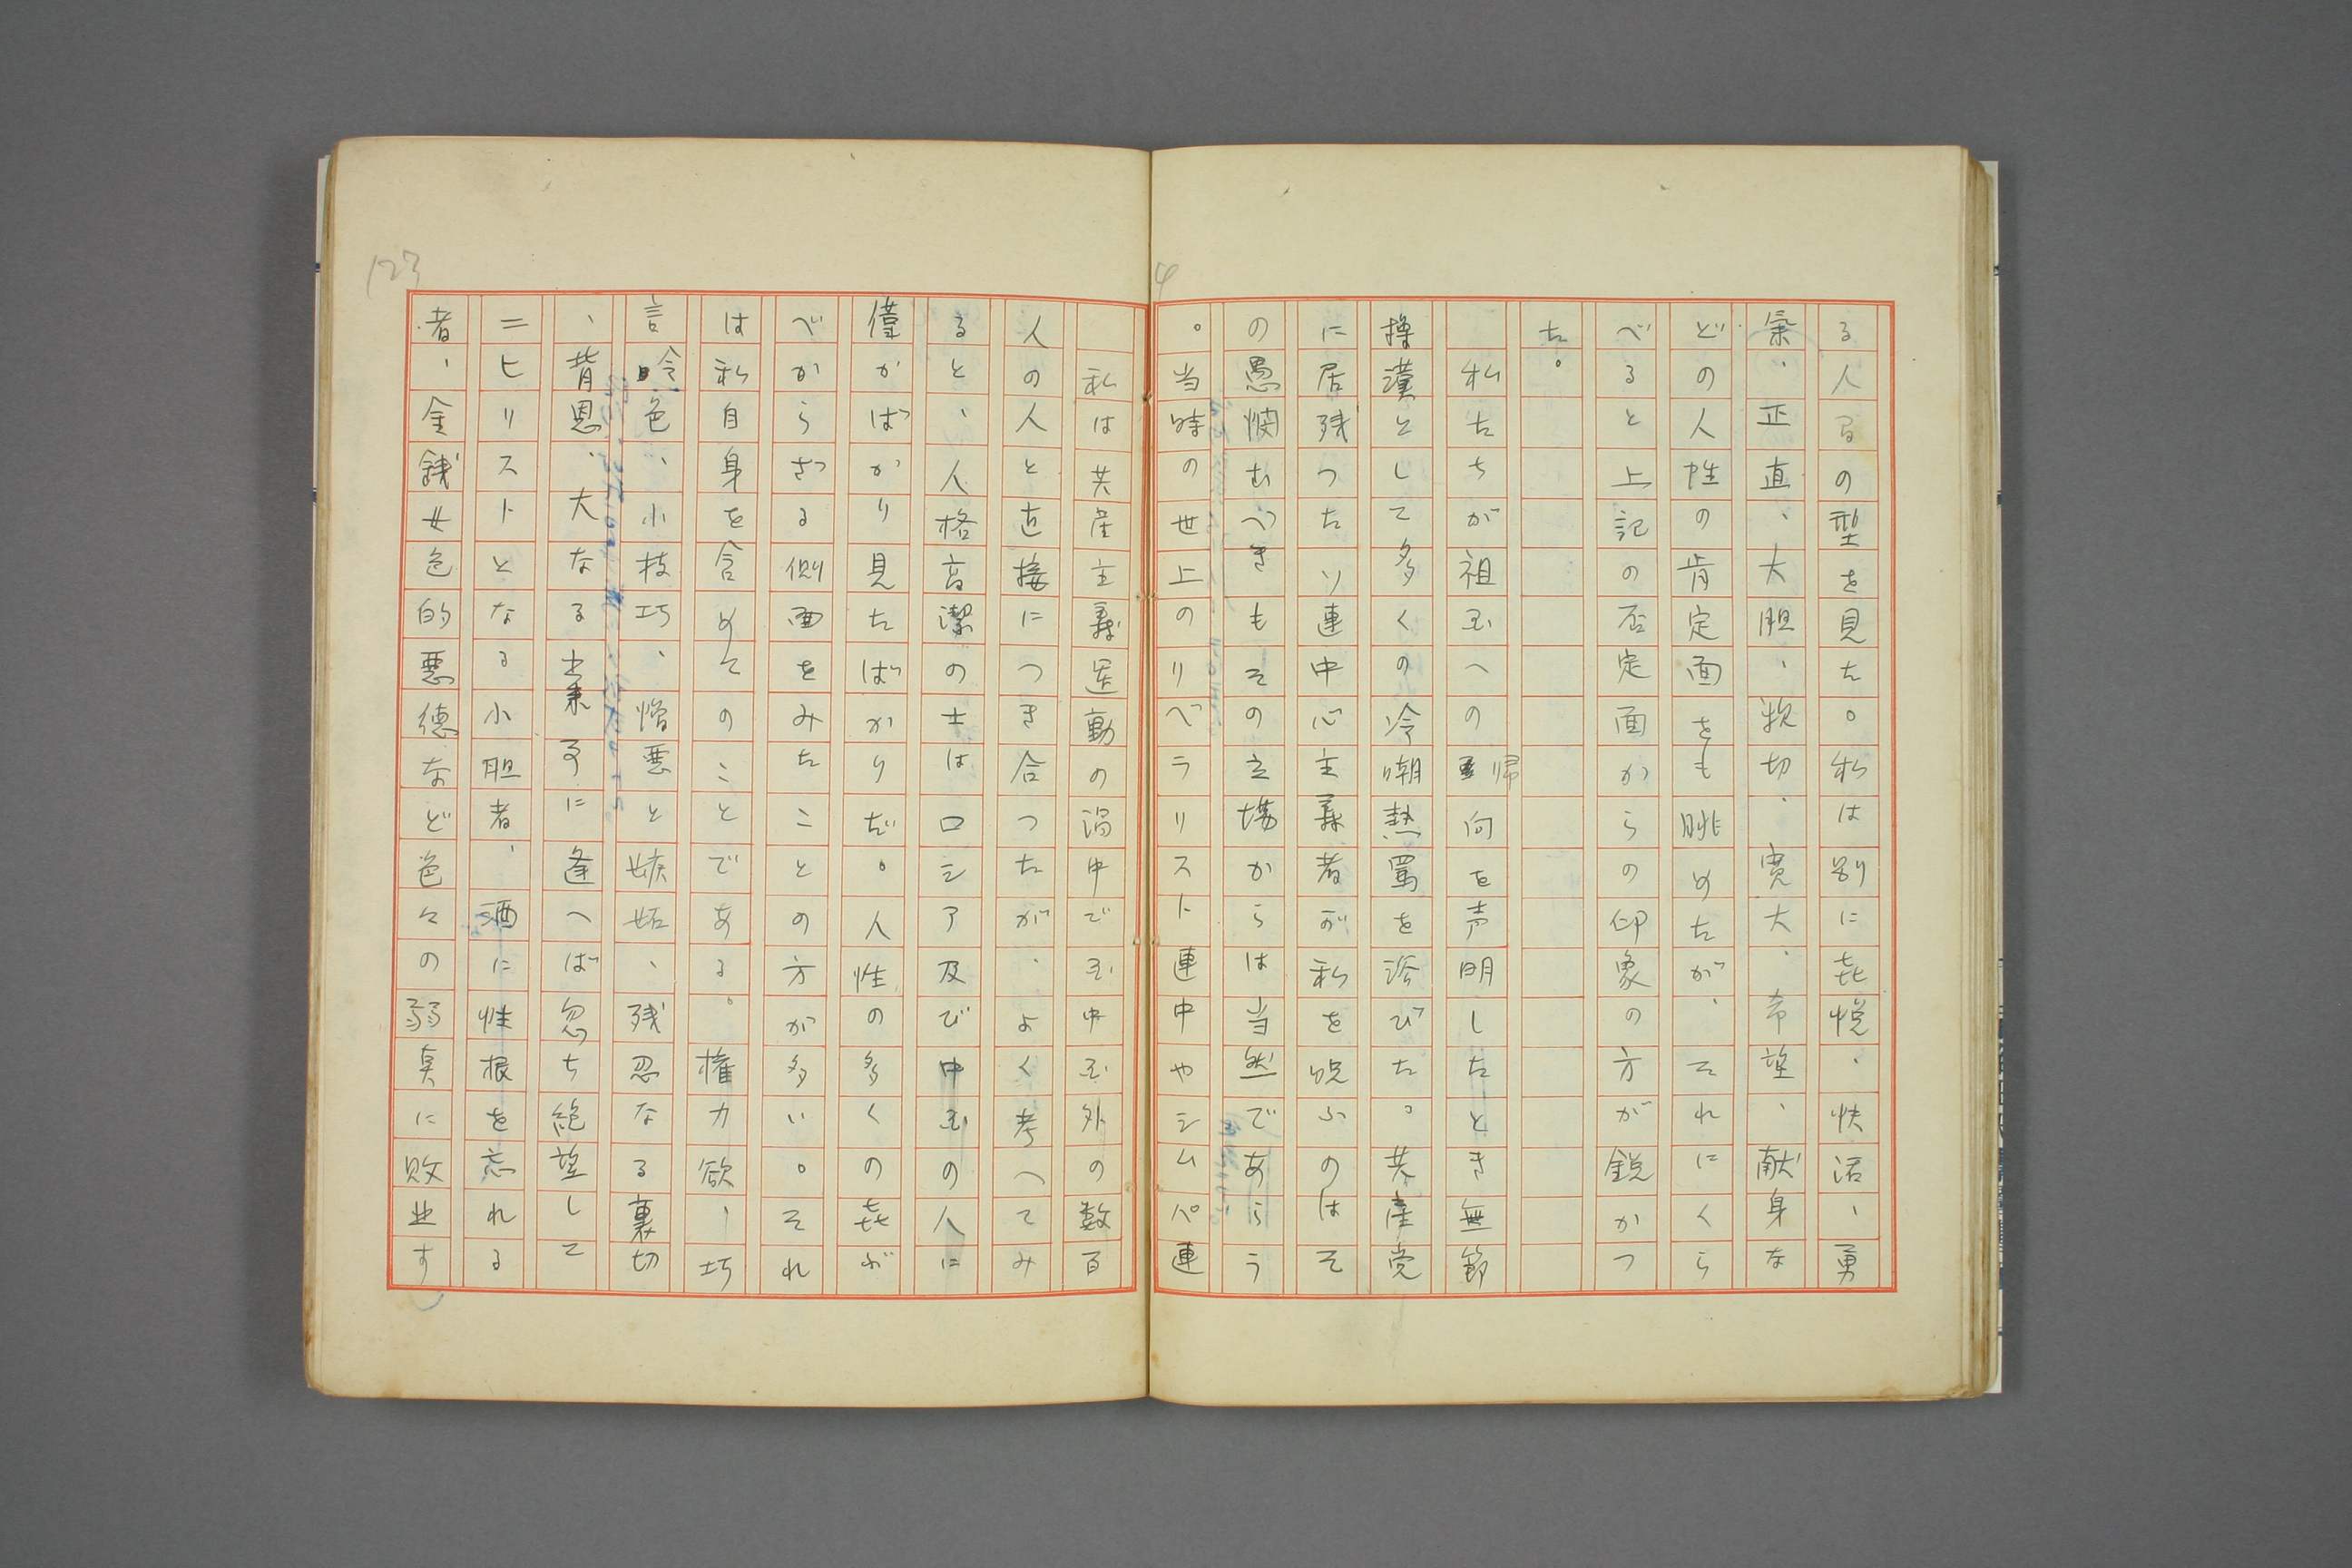 る人間の型を見た。私は別に喜悦、快活、勇
気、正直、大胆、親切、寛大、希望、献身な
どの人性の肯定面をも眺めたが、それにくら
べると上記の否定面からの印象の方が鋭かつ
た。
私たちが祖国への帰向を声明したとき無節
操漢として多くの冷嘲熱罵を浴びた。共産党
に居残つたソ連中心主義者が私を呪ふのはそ
の愚憫むべきもその立場からは当然であらう
。当時の世上のリベラリスト連中やシムパ連
4
私は共産主義運動の渦中で国中国外の数百
人の人と直接につき合つたが、よく考へてみ
ると、人格高潔の士はロシア及び中国の人に
僅かばかり見たばかりだ。人性の多くの喜ぶ
べからざる側面をみたことの方が多い。それ
は私自身を含めてのことである。権力欲、巧
言令色、小枝巧、憎悪と嫉妬、残忍なる裏切
、背恩、大なる事に逢へば忽ち絶望して
ニヒリストとなる小胆者、酒に性根を忘れる
者、金銭女色的悪徳など色々の弱臭に敗北す
123